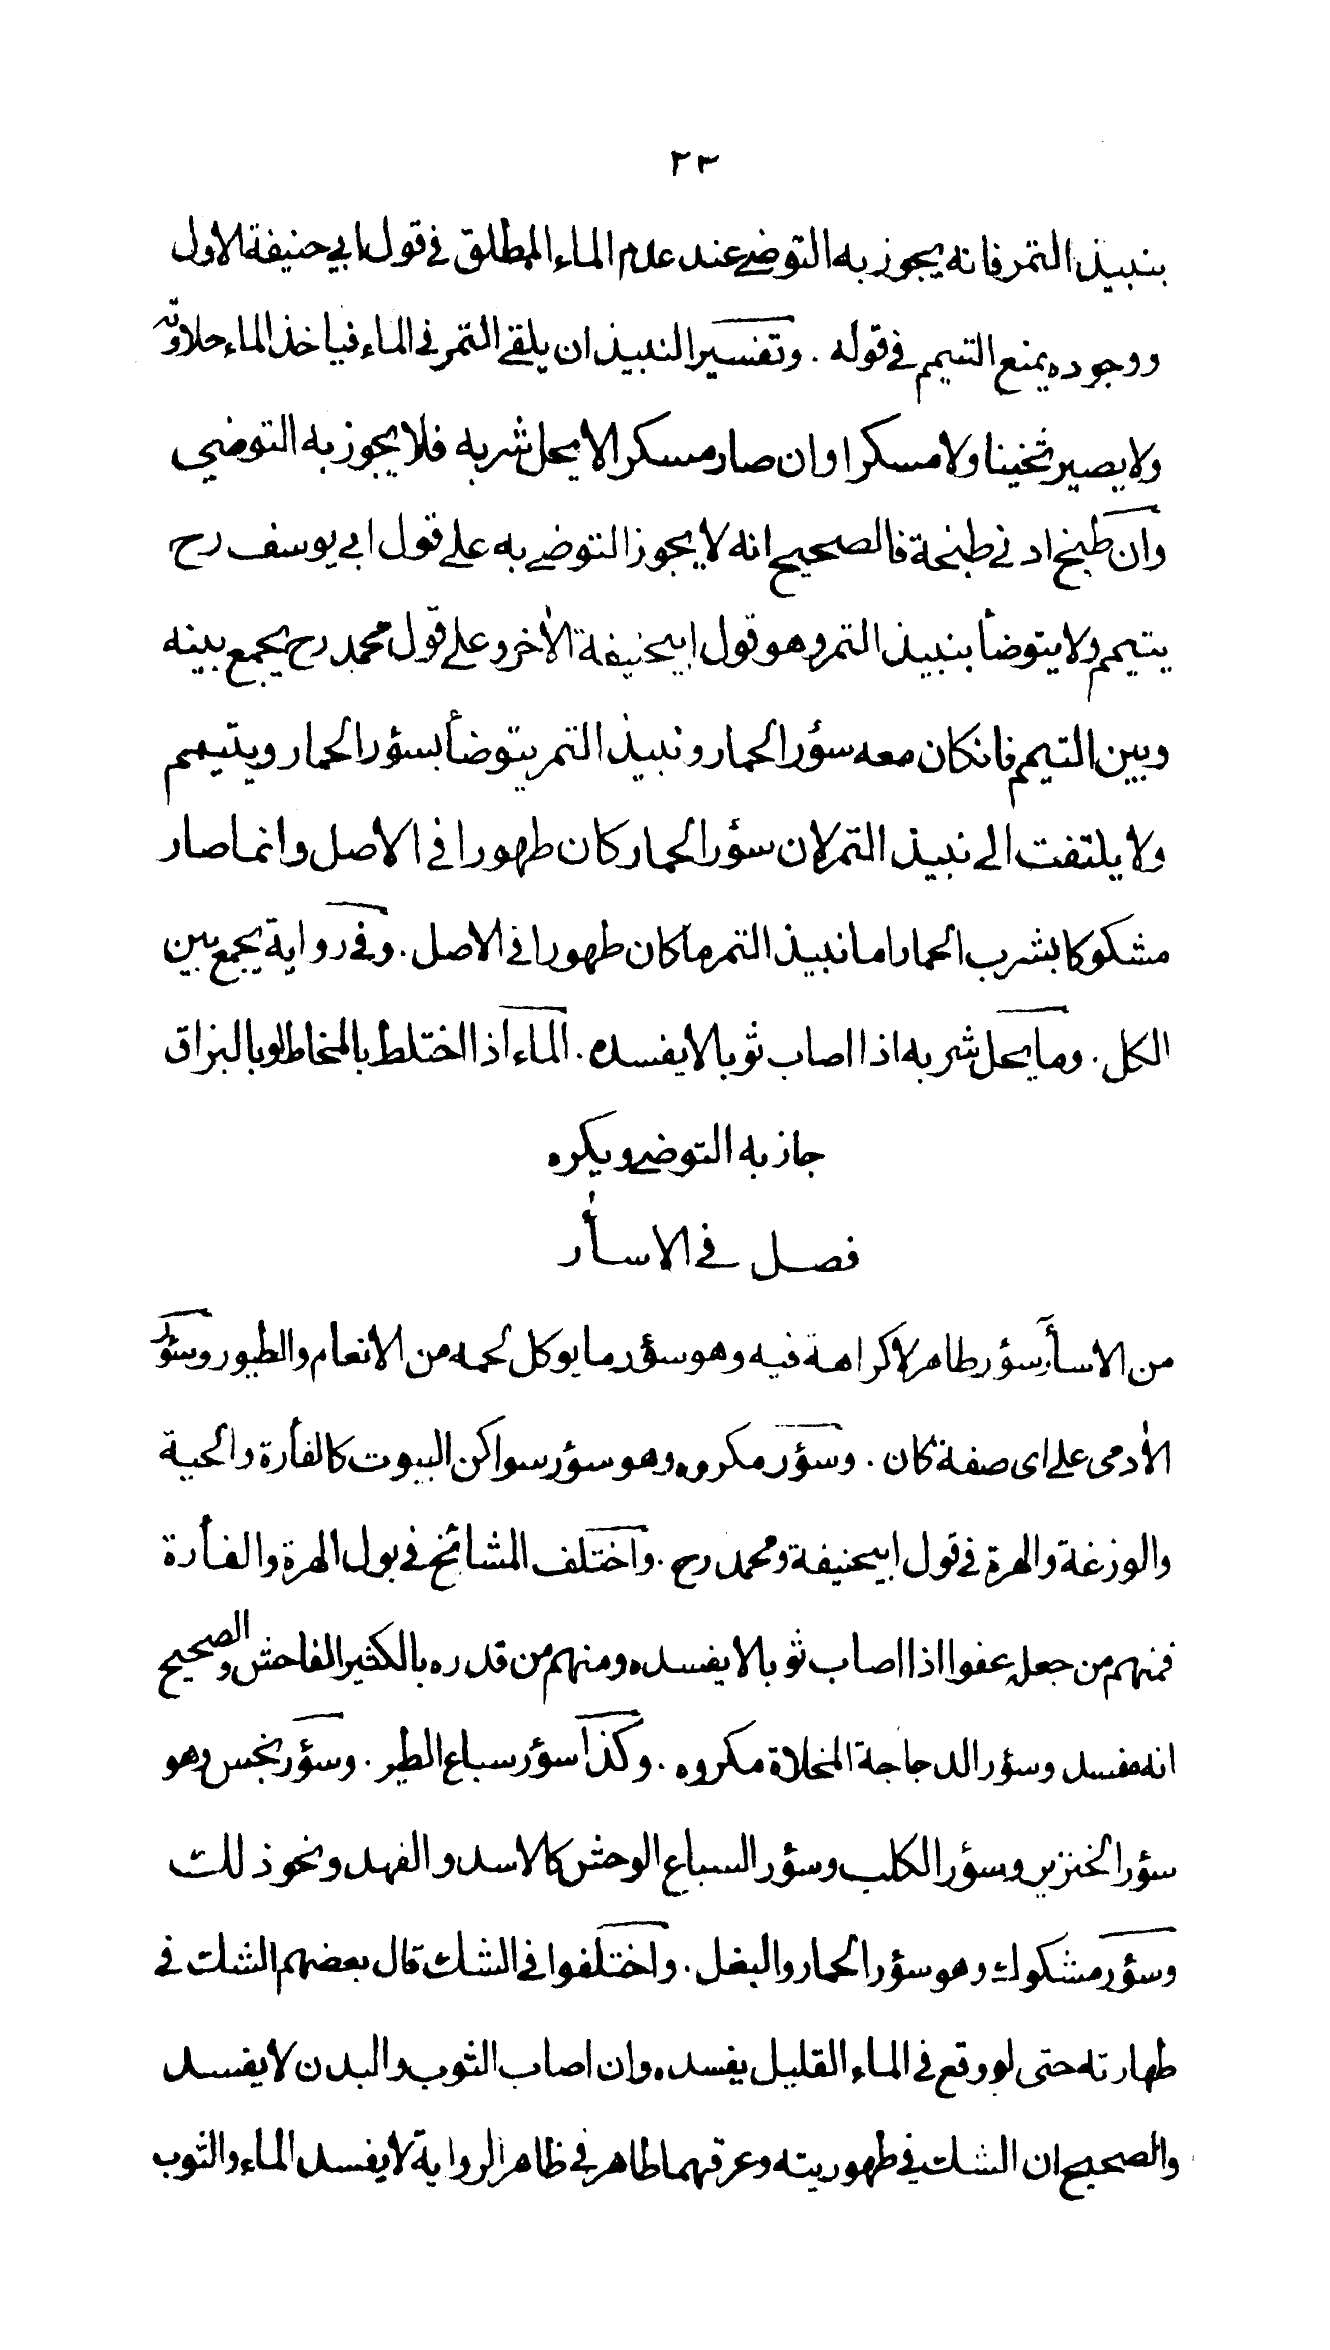 ٢٣
بنبيذ التمر فانه يجوز به التوضي عند عدم الماء المطلق في قول ابي حنيفة الاول
ووجوده يمنع التيمم في قوله . وتفسير النبيذ ان يلقى التمر في الماء فياخذ الماء حلاوته
ولا يصير ثخينا ولا مسكرا وان صار مسكرا لا يحل شربه فلا يجوز به التوضي
وان طبخ ادنى طبخة فالصحيح انه لا يجوز التوضي به على قول ابي يوسف رح
يتيمم ولا يتوضأ بنبيذ التمر وهو قول ابيحنيفة الأخر وعلى قول محمد رح يجمع بينه
وبين التيمم فانكان معه سؤر الحمار ونبيذ التمر يتوضأ بسؤر الحمار ويتيمم
ولا يلتفت الى نبيذ التمر لان سؤر الحمار كان طهورا في الاصل وانما صار
مشكوكا بشرب الحمار اما نبيذ التمر ما كان طهورا في الاصل . وفي رواية يجمع بين
الكل . وما يحل شربه اذا اصاب ثوبا لا يفسده . الماء اذا اختلط بالمخاط او بالبزاق
جاز به التوضي ويكره
فصل في الاسأر
من الاسأر سؤر طاهر لا كراهة فيه وهو سؤر ما يوكل لحمه من الانعام والطيور وسؤر
الأدمى على اى صفة كان . وسؤر مكروه وهو سؤر سواكن البيوت كالفأرة والحية
والوزغة والهرة في قول ابيحنيفة ومحمد رح . واختلف المشائخ في بول الهرة والفأرة
فمنهم من جعله عفوا اذا اصاب ثوبا لا يفسده ومنهم من قدره بالكثير الفاحش والصحيح
انه مفسد وسؤر الدجاجة المخلاة مكروه . وكذا سؤر سباع الطير . وسؤر نجس وهو
سؤر الخنزير وسؤر الكلب وسؤر السباع الوحش كالاسد والفهد ونحو ذلك
وسؤر مشكوك وهو سؤر الحمار والبغل . واختلفوا في الشك قال بعضهم الشك في
طهارته حتى لو وقع في الماء القليل يفسده وان اصاب الثوب والبدن لا يفسد
والصحيح ان الشك في طهوريته وعرقهما طاهر في ظاهر الرواية لا يفسد الماء والثوب